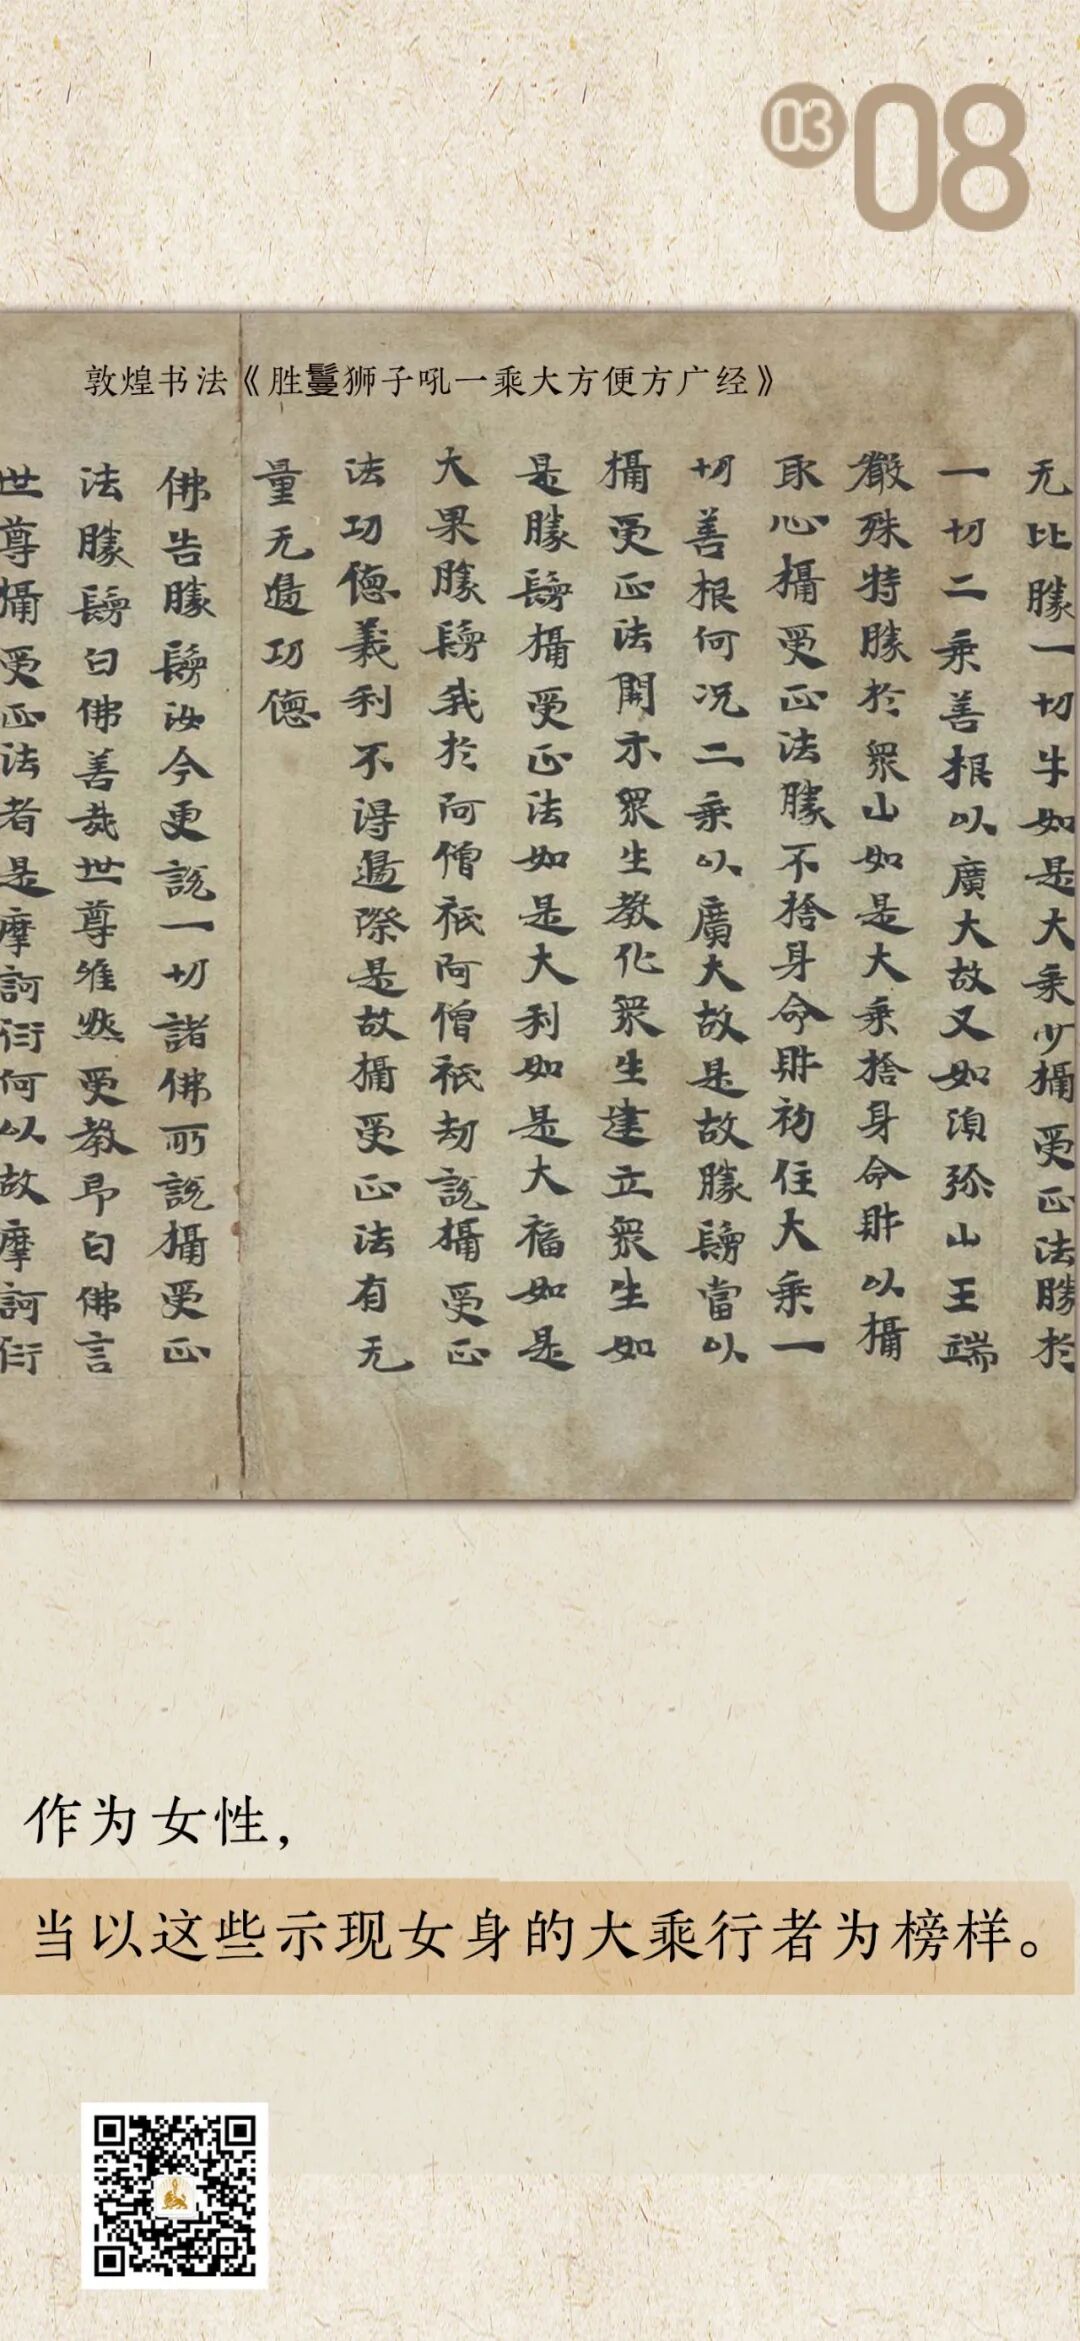 03 08
敦煌书法《胜鬘狮子吼一乘大方便方广经》
无比勝一切牛如是大乘少攝受正法勝於
一切二乘善根以廣大故又如須弥山王端
嚴殊特勝於眾山如是大乘捨身命財以攝
取心攝受正法勝不捨身命財初住大乘一
切善根何况二乘以廣大故是故勝鬘當以
攝受正法開示眾生教化眾生建立眾生如
是勝鬘攝受正法如是大利如是大福如是
大果勝鬘我於阿僧祇阿僧祇劫說攝受正
法功德義利不得邊際是故攝受正法有无
量无邊功德
佛告勝鬘汝今更說一切諸佛所說攝受正
法勝鬘白佛善哉世尊唯然受教即白佛言
世尊攝受正法者是摩訶衍何以故摩訶衍
作为女性，
当以这些示现女身的大乘行者为榜样。